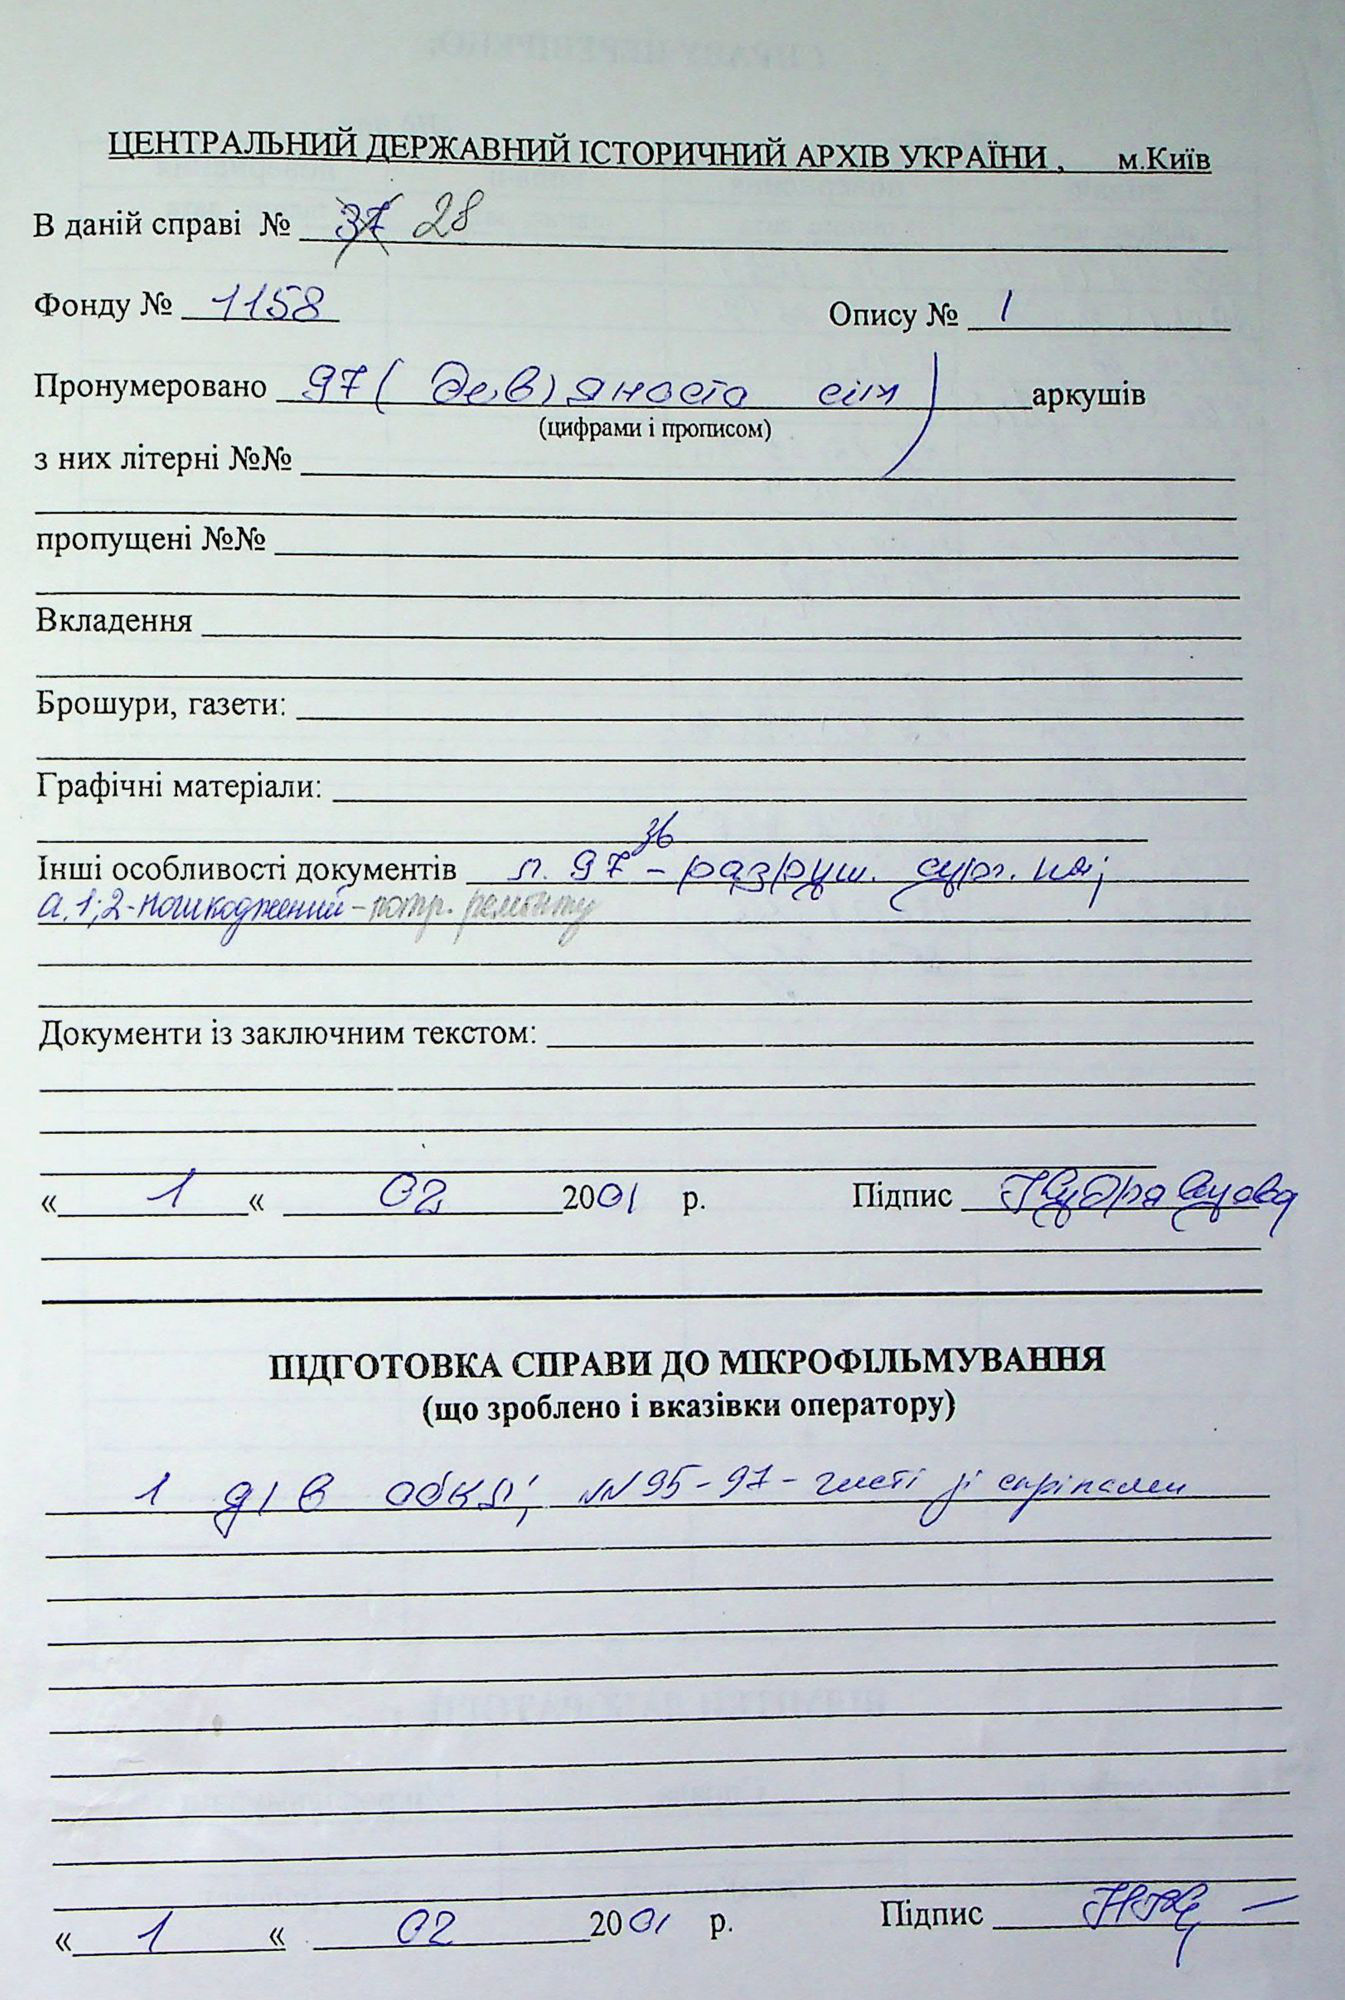 ЦЕНТРАЛЬНИЙ ДЕРЖАВНИЙ ІСТОРИЧНИЙ АРХІВ УКРАЇНИ , м.Київ
В даній справі № 37 28
Фонду № 1158 Опису № 1
Пронумеровано 97 ( дев'яноста сім ) аркушів
(цифрами і прописом)
з них літерні №№
пропущені №№
Вкладення
Брошури, газети:
Графічні матеріали:
зв
Інші особливості документів л. 97 - разруш. сург. печ;
а. 1; 2 - пошкоджений - потр. ремонту
Документи із заключним текстом:
« 1 « 02 2001 р. Підпис
ПІДГОТОВКА СПРАВИ ДО МІКРОФІЛЬМУВАННЯ
(що зроблено і вказівки оператору)
1 д/в обкл; №№ 95-97 - чисті зі скріпами
« 1 « 02 2001 р. Підпис